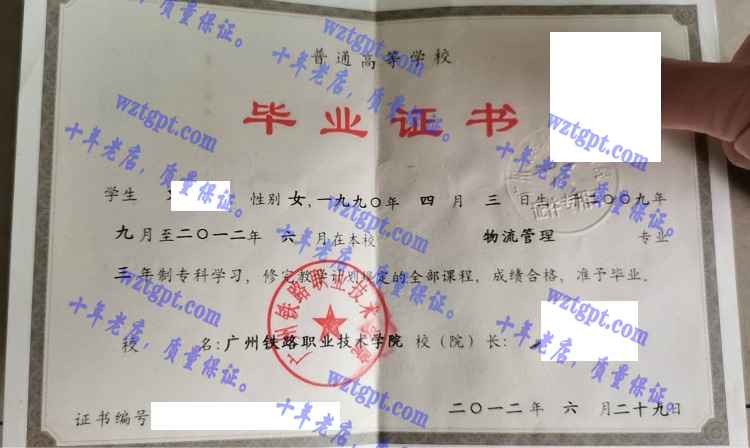 普通高等学校
毕业证书
学生 性别 女,一九九〇年 四 月 三 日生,于二〇〇九年
九月至二〇一二年 六 月在本校 物流管理 专业
三 年制专科学习,修完教学计划规定的全部课程,成绩合格,准予毕业。
校 名:广州铁路职业技术学院 校(院)长:
证书编号
二〇一二年 六 月二十九日
广州铁路职业技术学院
wztgpt.com
十年老店,质量保证。
wztgpt.com
十年老店,质量保证。
wztgpt.com
十年老店,质量保证。
wztgpt.com
十年老店,质量保证。
wztgpt.com
十年老店,质量保证。
wztgpt.com
十年老店,质量保证。
wztgpt.com
十年老店,质量保证。
wztgpt.com
十年老店,质量保证。
wztgpt.com
十年老店,质量保证。